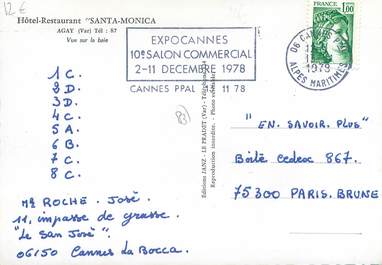 12 €
Hôtel-Restaurant "SANTA-MONICA
AGAY (Var) Tél : 87
Vue sur la baie
FRANCE
1,00
EXPOCANNES
10e SALON COMMERCIAL
2-11 DECEMBRE 1978
CANNES PPAL
11 78
06 CANNES
1978
ALPES MARITIMES
1 C.
2 D.
3 D.
4 C.
5 A.
6 B.
7 C.
8 C.
83
Editions JANZ - LE PRADET (Var) - Téléphone
Reproduction interdite. - Photo
"EN SAVOIR PLUS"
Boîte Cedex 867.
75300 PARIS. BRUNE
Mr ROCHE. José.
11, impasse de grasse
"Le San José".
06150 Cannes La Bocca.